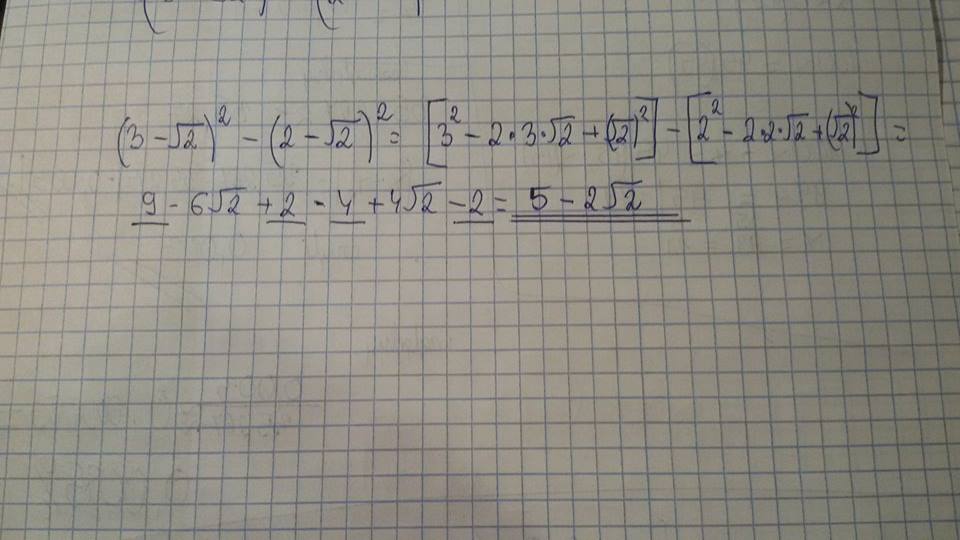 (3 - √2)² - (2 - √2)² = [3² - 2·3·√2 + (√2)²] - [2² - 2·2·√2 + (√2)²] =
9 - 6√2 + 2 - 4 + 4√2 - 2 = 5 - 2√2